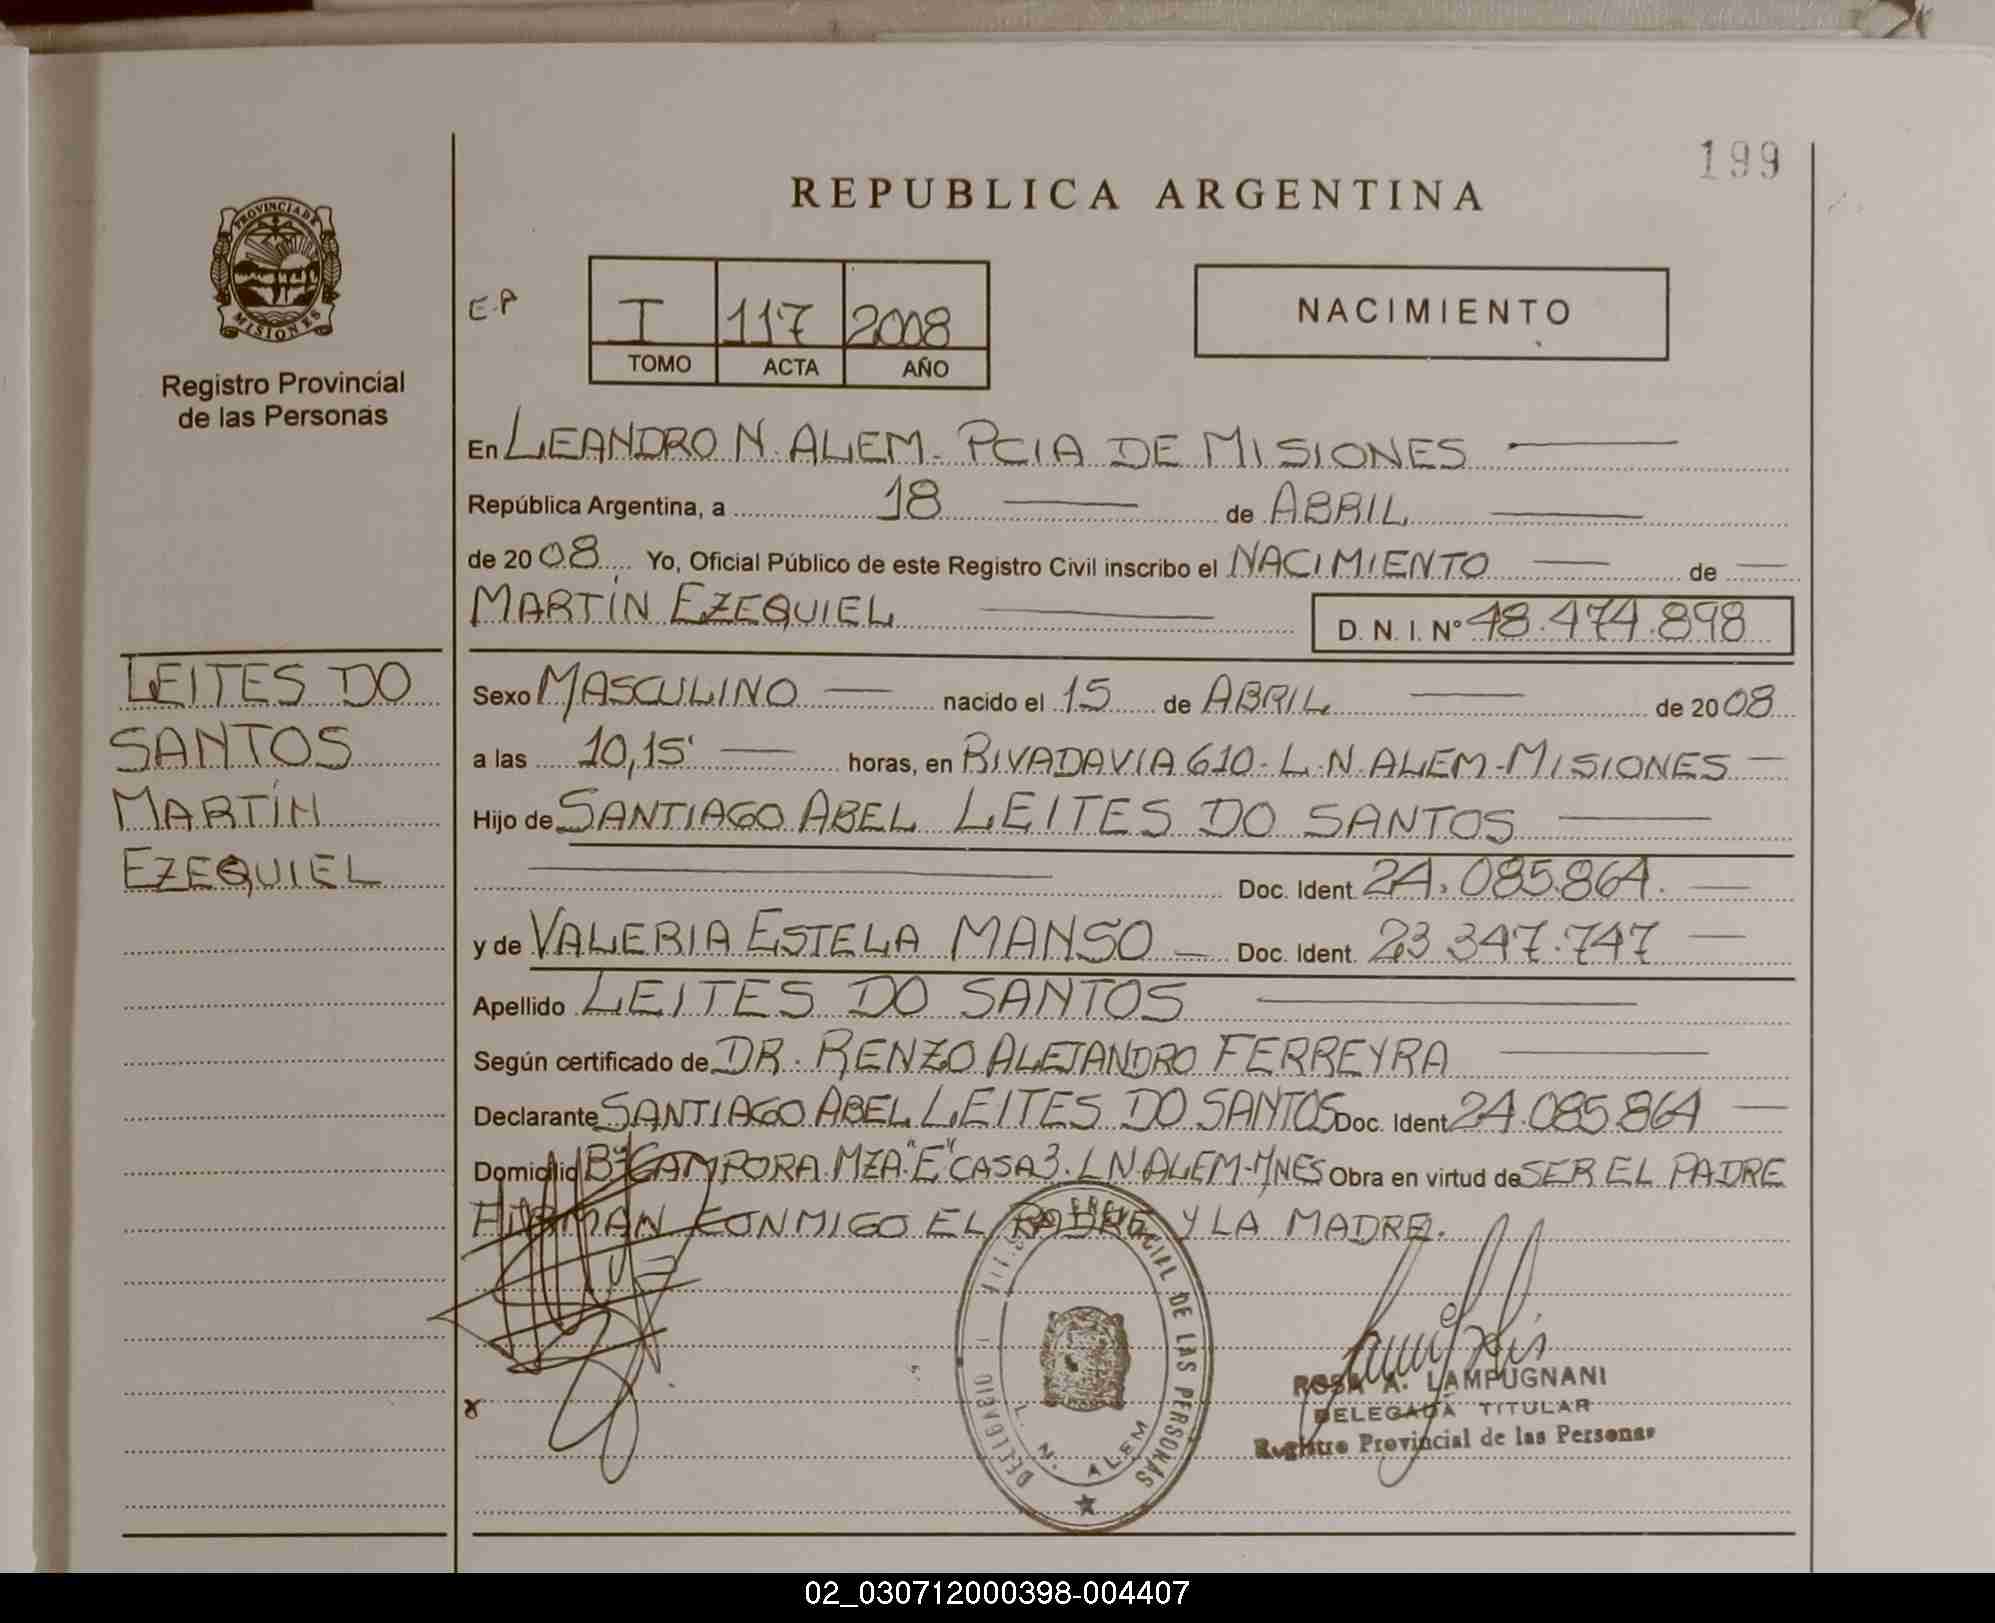 199
REPUBLICA ARGENTINA
PROVINCIA DE
MISIONES
Registro Provincial
de las Personas
E.P
I 117 2008
TOMO ACTA AÑO
NACIMIENTO
En LEANDRO N. ALEM - PCIA DE MISIONES
República Argentina, a 18 de ABRIL
de 2008 Yo, Oficial Público de este Registro Civil inscribo el NACIMIENTO de
MARTÍN EZEQUIEL D. N. I. N° 48.474.898
LEITES DO
SANTOS
MARTÍN
EZEQUIEL
Sexo MASCULINO nacido el 15 de ABRIL de 2008
a las 10,15' horas, en RIVADAVIA 610 - L.N. ALEM - MISIONES
Hijo de SANTIAGO ABEL LEITES DO SANTOS
Doc. Ident. 24.085.864.
y de VALERIA ESTELA MANSO Doc. Ident. 23 347.747
Apellido LEITES DO SANTOS
Según certificado de DR. RENZO ALEJANDRO FERREYRA
Declarante SANTIAGO ABEL LEITES DO SANTOS Doc. Ident 24.085.864
Domicilio Bº CAMPORA. MZA. "E" CASA 3. L N. ALEM - MNES Obra en virtud de SER EL PADRE
FIRMAN CONMIGO EL PADRE Y LA MADRE.
DE LAS PERSONAS
L. N. ALEM
ROSA A. LAMPUGNANI
DELEGADA TITULAR
Registro Provincial de las Personas
02_030712000398-004407